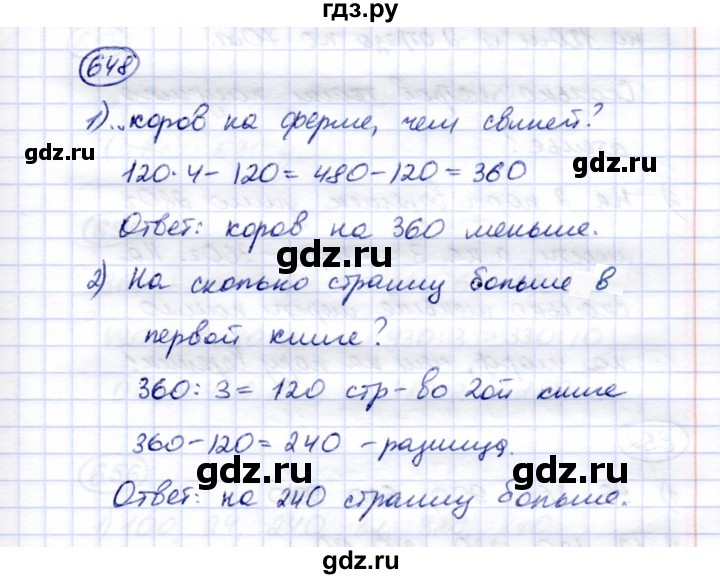 гдз.ру
648
1) .. коров на ферме, чем свиней?
gdz.ru
gdz.ru
120·4-120=480-120=360
Ответ: коров на 360 меньше.
gdz.ru
2) На сколько страниц больше в
первой книге?
gdz.ru
gdz.ru
360:3=120 стр-во 2ой книге
360-120=240 -разница.
gdz.ru
gdz.ru
Ответ: на 240 страниц больше.
gdz.ru